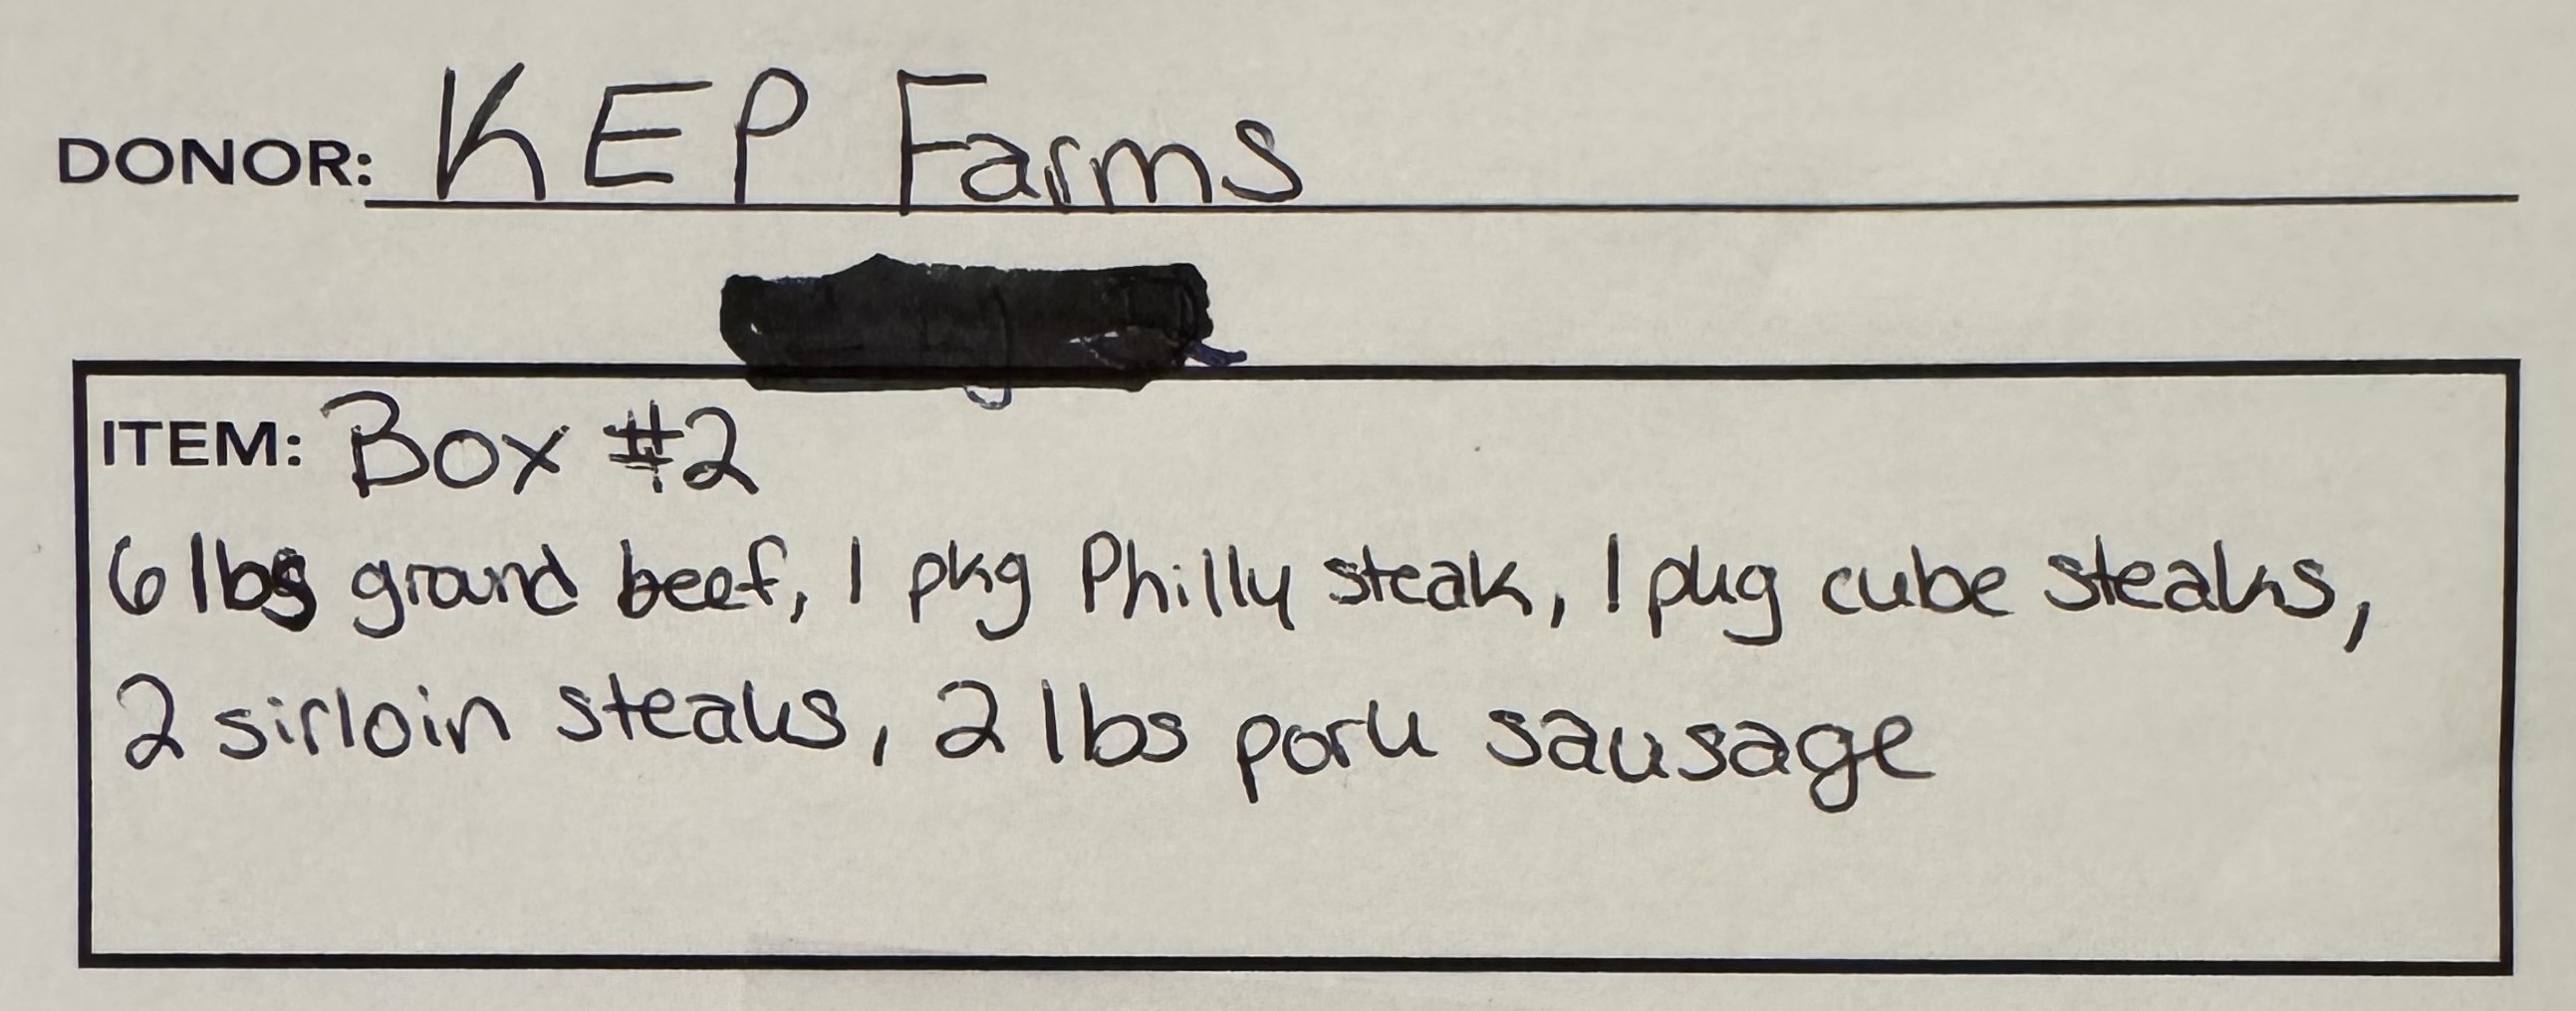 DONOR: KEP Farms
ITEM: Box #2
6 lbs ground beef, 1 pkg Philly steak, 1 pkg cube steaks,
2 sirloin steaks, 2 lbs pork sausage